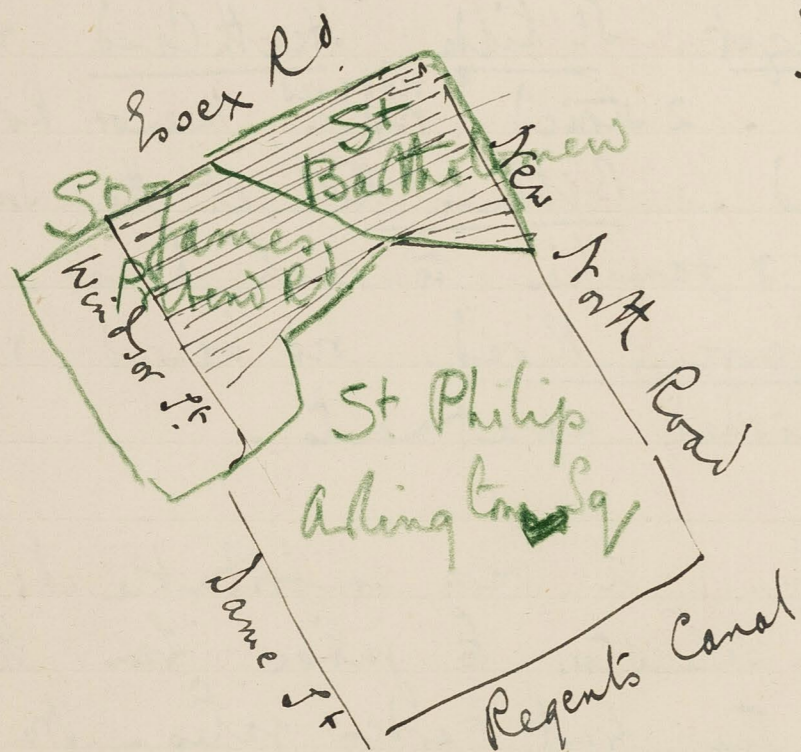 Essex Rd.
St
Bartholomew
New
North
Road
St
James
Prebend Rd
Windsor St.
St Philip
Arlington Sq
Dame St
Regents Canal